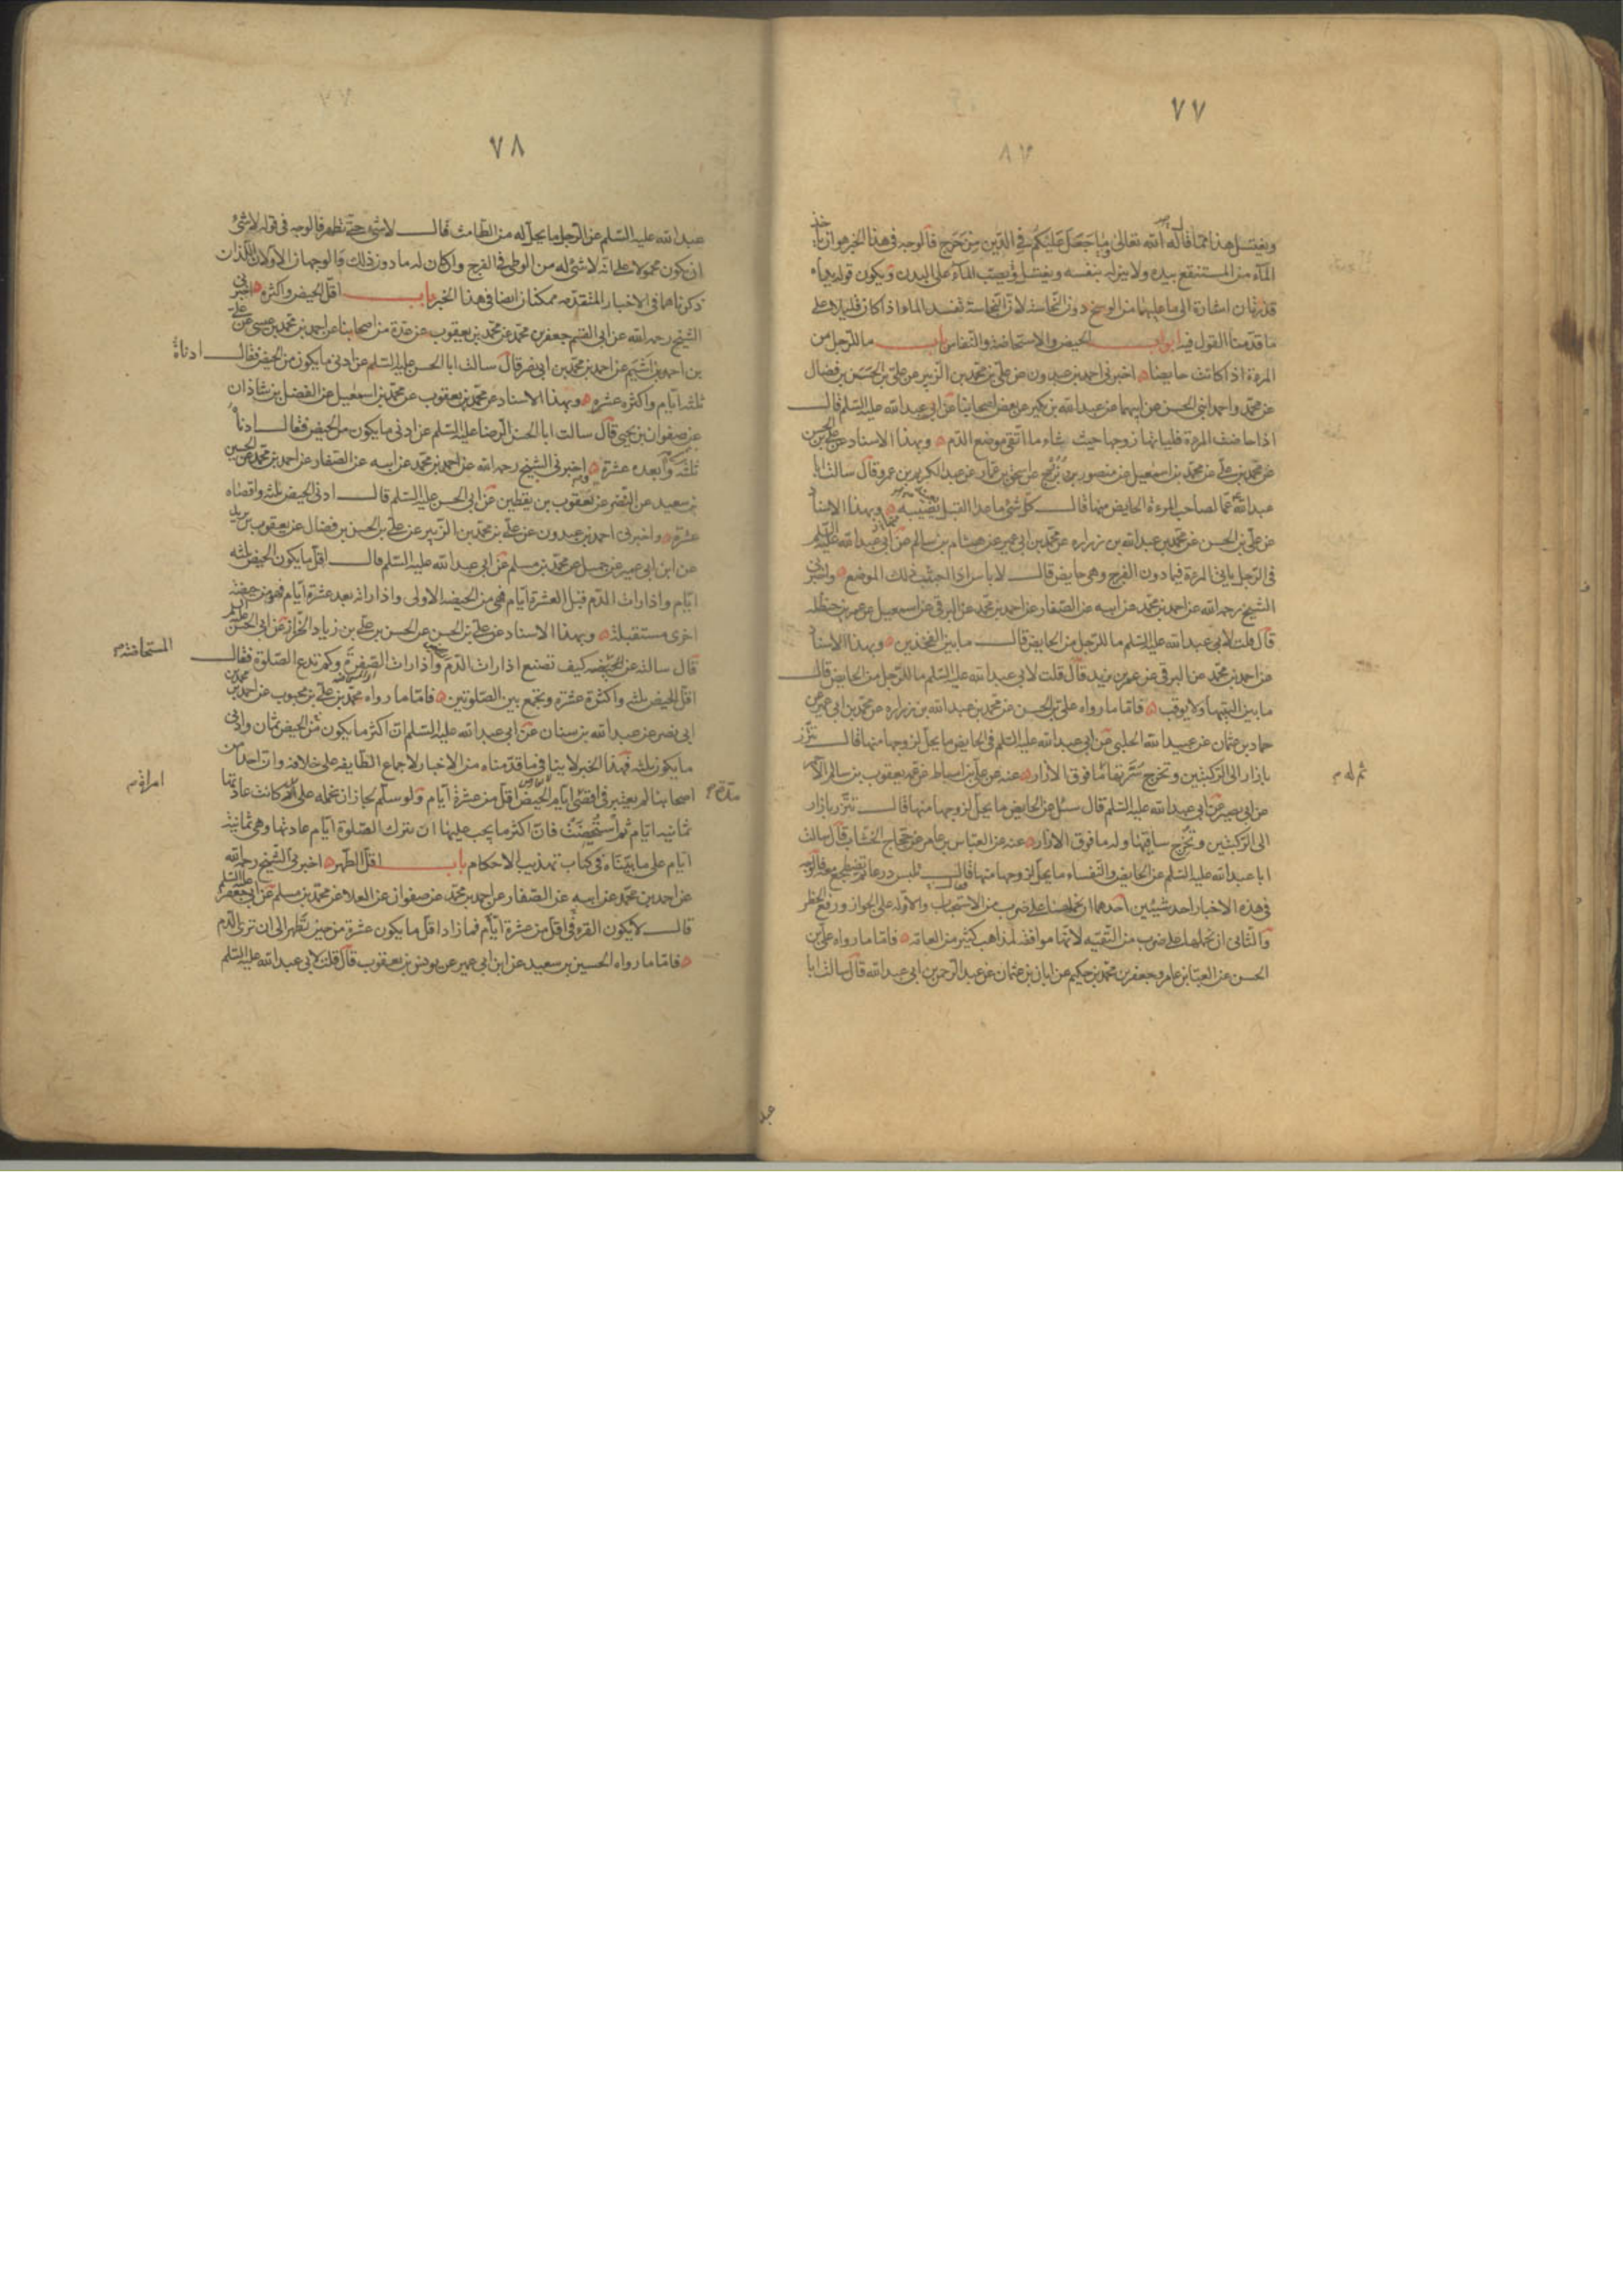 ٧٧
ويغتسل هذا مما قال الله تعالى ما جعل عليكم في الدين من حرج فالوجه في هذا الخبر هو ان ياخذ
الماء من المستنقع بيده ولا ينزله بنفسه ويغتسل بصب الماء على البدن ويكون قوله يداه
قذرتان اشارة الى ما عليهما من الوسخ دون النجاسة لان النجاسة تفسد الماء اذا كان قليلا على
ما قدمنا القول فيه ابواب الحيض والاستحاضة والنفاس باب ما للرجل من
المرءة اذا كانت حايضا اخبرني احمد بن عبدون عن علي بن محمد بن الزبير عن علي بن الحسن بن فضال
عن محمد واحمد ابني الحسن عن ابيهما عن عبد الله بن بكير عن بعض اصحابنا عن ابي عبد الله عليه السلم قال
اذا حاضت المرءة فلياتها زوجها حيث شاء ما اتقى موضع الدم وبهذا الاسناد عن علي بن الحسن
عن محمد بن علي عن محمد بن اسمعيل عن منصور بن بزرج عن اسحق بن عمار عن عبد الكريم بن عمرو قال سالت ابا
عبد الله عما لصاحب المرءة الحايض منها قال كل شئ ما عدا القبل بعينه وبهذا الاسناد
عن علي بن الحسن عن محمد بن عبد الله بن زراره عن محمد بن ابي عمير عن هشام بن سالم عن ابي عبد الله عليه السلم
في الرجل ياتي المرءة فيما دون الفرج وهي حايض قال لا باس اذا اجتنب ذلك الموضع واخبرني
الشيخ رحمه الله عن احمد بن محمد عن ابيه عن الصفار عن احمد بن محمد عن البرقي عن اسمعيل عن عمر بن حنظله
قال قلت لابي عبد الله عليه السلم ما للرجل من الحايض قال ما بين الفخذين وبهذا الاسناد
عن احمد بن محمد عن البرقي عن عمر بن يزيد قال قلت لابي عبد الله عليه السلم ما للرجل من الحايض قال
ما بين اليتيها ولا يوقب فاما ما رواه علي بن الحسن عن محمد بن عبد الله بن زراره عن محمد بن ابي عمير عن
حماد بن عثمان عن عبيد الله الحلبي عن ابي عبد الله عليه السلم في الحايض ما يحل لزوجها منها قال تتزر
بازار الى الركبتين وتخرج سرتها ما فوق الازار عنه عن علي بن اسباط عن عمه يعقوب بن سالم الاحمر
ثم له
عن ابي بصير عن ابي عبد الله عليه السلم قال سئل عن الحايض ما يحل لزوجها منها قال تتزر بازار
الى الركبتين وتخرج ساقيها وله ما فوق الازار عنه عن العباس بن عامر عن حجاج الخشاب قال سالت
ابا عبد الله عليه السلم عن الحايض والنفساء ما يحل لزوجها منها قال تلبس درعا ثم تضطجع معه فالوجه
في هذه الاخبار احد شيئين احدهما ان نحملها على ضرب من الاستحباب والاوله على الجواز ورفع الحظر
والثاني ان نحملها على ضرب من التقيه لانها موافقة لمذاهب كثير من العامة فاما ما رواه علي بن
الحسن عن العباس بن عامر وجعفر بن محمد بن حكيم عن ابان بن عثمان عن عبد الرحمن بن ابي عبد الله قال سالت ابا
عبد
٧٨
عبد الله عليه السلم عن الرجل ما يحل له من الطامث قال لا شئ حتى تطهر فالوجه في قوله لا شئ
ان يكون محمولا على انه لا شئ له من الوطي في الفرج وان كان له ما دون ذلك والوجهان الاولان اللذان
ذكرناهما في الاخبار المتقدمه ممكنان ايضا في هذا الخبر باب اقل الحيض واكثره اخبرني
الشيخ رحمه الله عن ابي القسم جعفر بن محمد عن محمد بن يعقوب عن عدة من اصحابنا عن احمد بن محمد بن عيسى عن علي
بن احمد بن اشيم عن احمد بن محمد بن ابي نصر قال سالت ابا الحسن عليه السلم عن ادنى ما يكون من الحيض فقال ادناه
ثلثه ايام واكثره عشره وبهذا الاسناد عن محمد بن يعقوب عن محمد بن اسمعيل عن الفضل بن شاذان
عن صفوان بن يحيى قال سالت ابا الحسن الرضا عليه السلم عن ادنى ما يكون من الحيض فقال ادناه
ثلثه وابعده عشرة واخبرني الشيخ رحمه الله عن احمد بن محمد عن ابيه عن الصفار عن احمد بن محمد عن الحسين
بن سعيد عن النضر عن يعقوب بن يقطين عن ابي الحسن عليه السلم قال ادنى الحيض ثلثه واقصاه
عشرة واخبرني احمد بن عبدون عن علي بن محمد بن الزبير عن علي بن الحسن بن فضال عن يعقوب بن يزيد
عن ابن ابي عمير عن جميل عن محمد بن مسلم عن ابي عبد الله عليه السلم قال اقل ما يكون الحيض ثلثه
ايام واذا رات الدم قبل العشرة ايام فهي من الحيضه الاولى واذا راته بعد عشرة ايام فهو من حيضة
اخرى مستقبلة وبهذا الاسناد عن علي بن الحسن عن الحسن بن علي بن زياد الخزاز عن ابي الحسن عليه السلم
المستحاضة
قال سالته عن الحيضه كيف تصنع اذا رات الدم واذا رات الصفرة وكم تدع الصلوة فقال
اقل الحيض ثلثه واكثره عشرة وتجمع بين الصلوتين فاما ما رواه محمد بن علي بن محبوب عن احمد بن محمد بن
ابي نصر عن عبد الله بن سنان عن ابي عبد الله عليه السلم ان اكثر ما يكون من الحيض ثمان وادنى
ما يكون ثلثه فهذا الخبر لا ينافي ما قدمناه من الاخبار لاجماع الطايفه على خلافه وان احدا من
اصحابنا لم يعتبر في اقصى ايام الحيض اقل من عشرة ايام ولو سلم لجاز ان نحمله على كانت عادتها
امراة
ثمانيه ايام ثم استحيضت فان اكثر ما يجب عليها ان تترك الصلوة ايام عادتها وهي ثمانية
ايام على ما بيناه في كتاب تهذيب الاحكام باب اقل الطهر اخبرني الشيخ رحمه الله
عن احمد بن محمد عن ابيه عن الصفار عن احمد بن محمد عن صفوان عن العلا عن محمد بن مسلم عن ابي جعفر عليه السلم
قال لا يكون القرء في اقل من عشرة ايام فما زاد اقل ما يكون عشرة من حين تطهر الى ان ترى الدم
فاما ما رواه الحسين بن سعيد عن ابن ابي عمير عن يونس بن يعقوب قال قلت لابي عبد الله عليه السلم